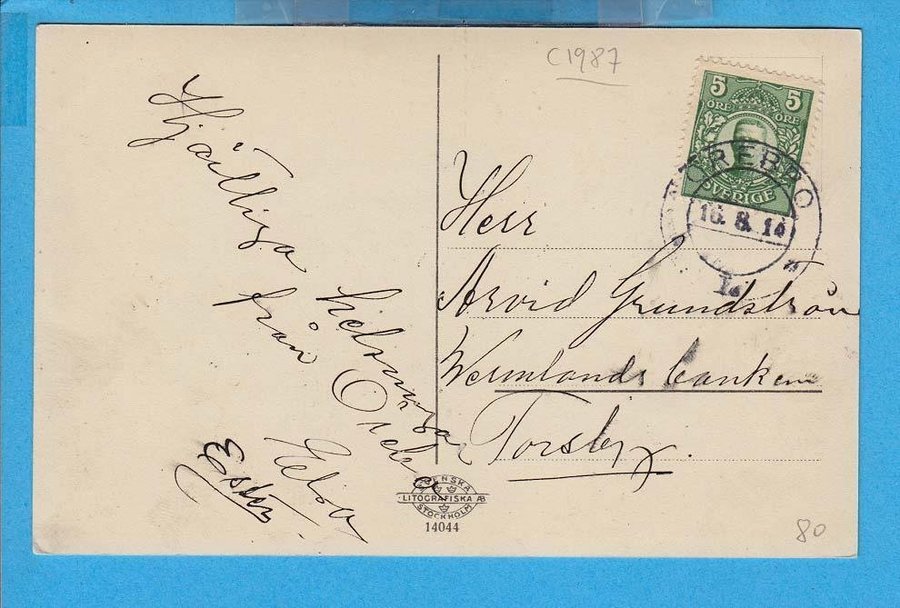 C1987
5 5
ÖRE ÖRE
SVERIGE
ÖREBRO
16. 8. 14
Hjärtliga
hälsninga
från Örebro
Elsa
Ester
Herr
Arvid Grundström
Wermlands banken
Torsby.
SVENSKA
LITOGRAFISKA AB
STOCKHOLM
14044
80